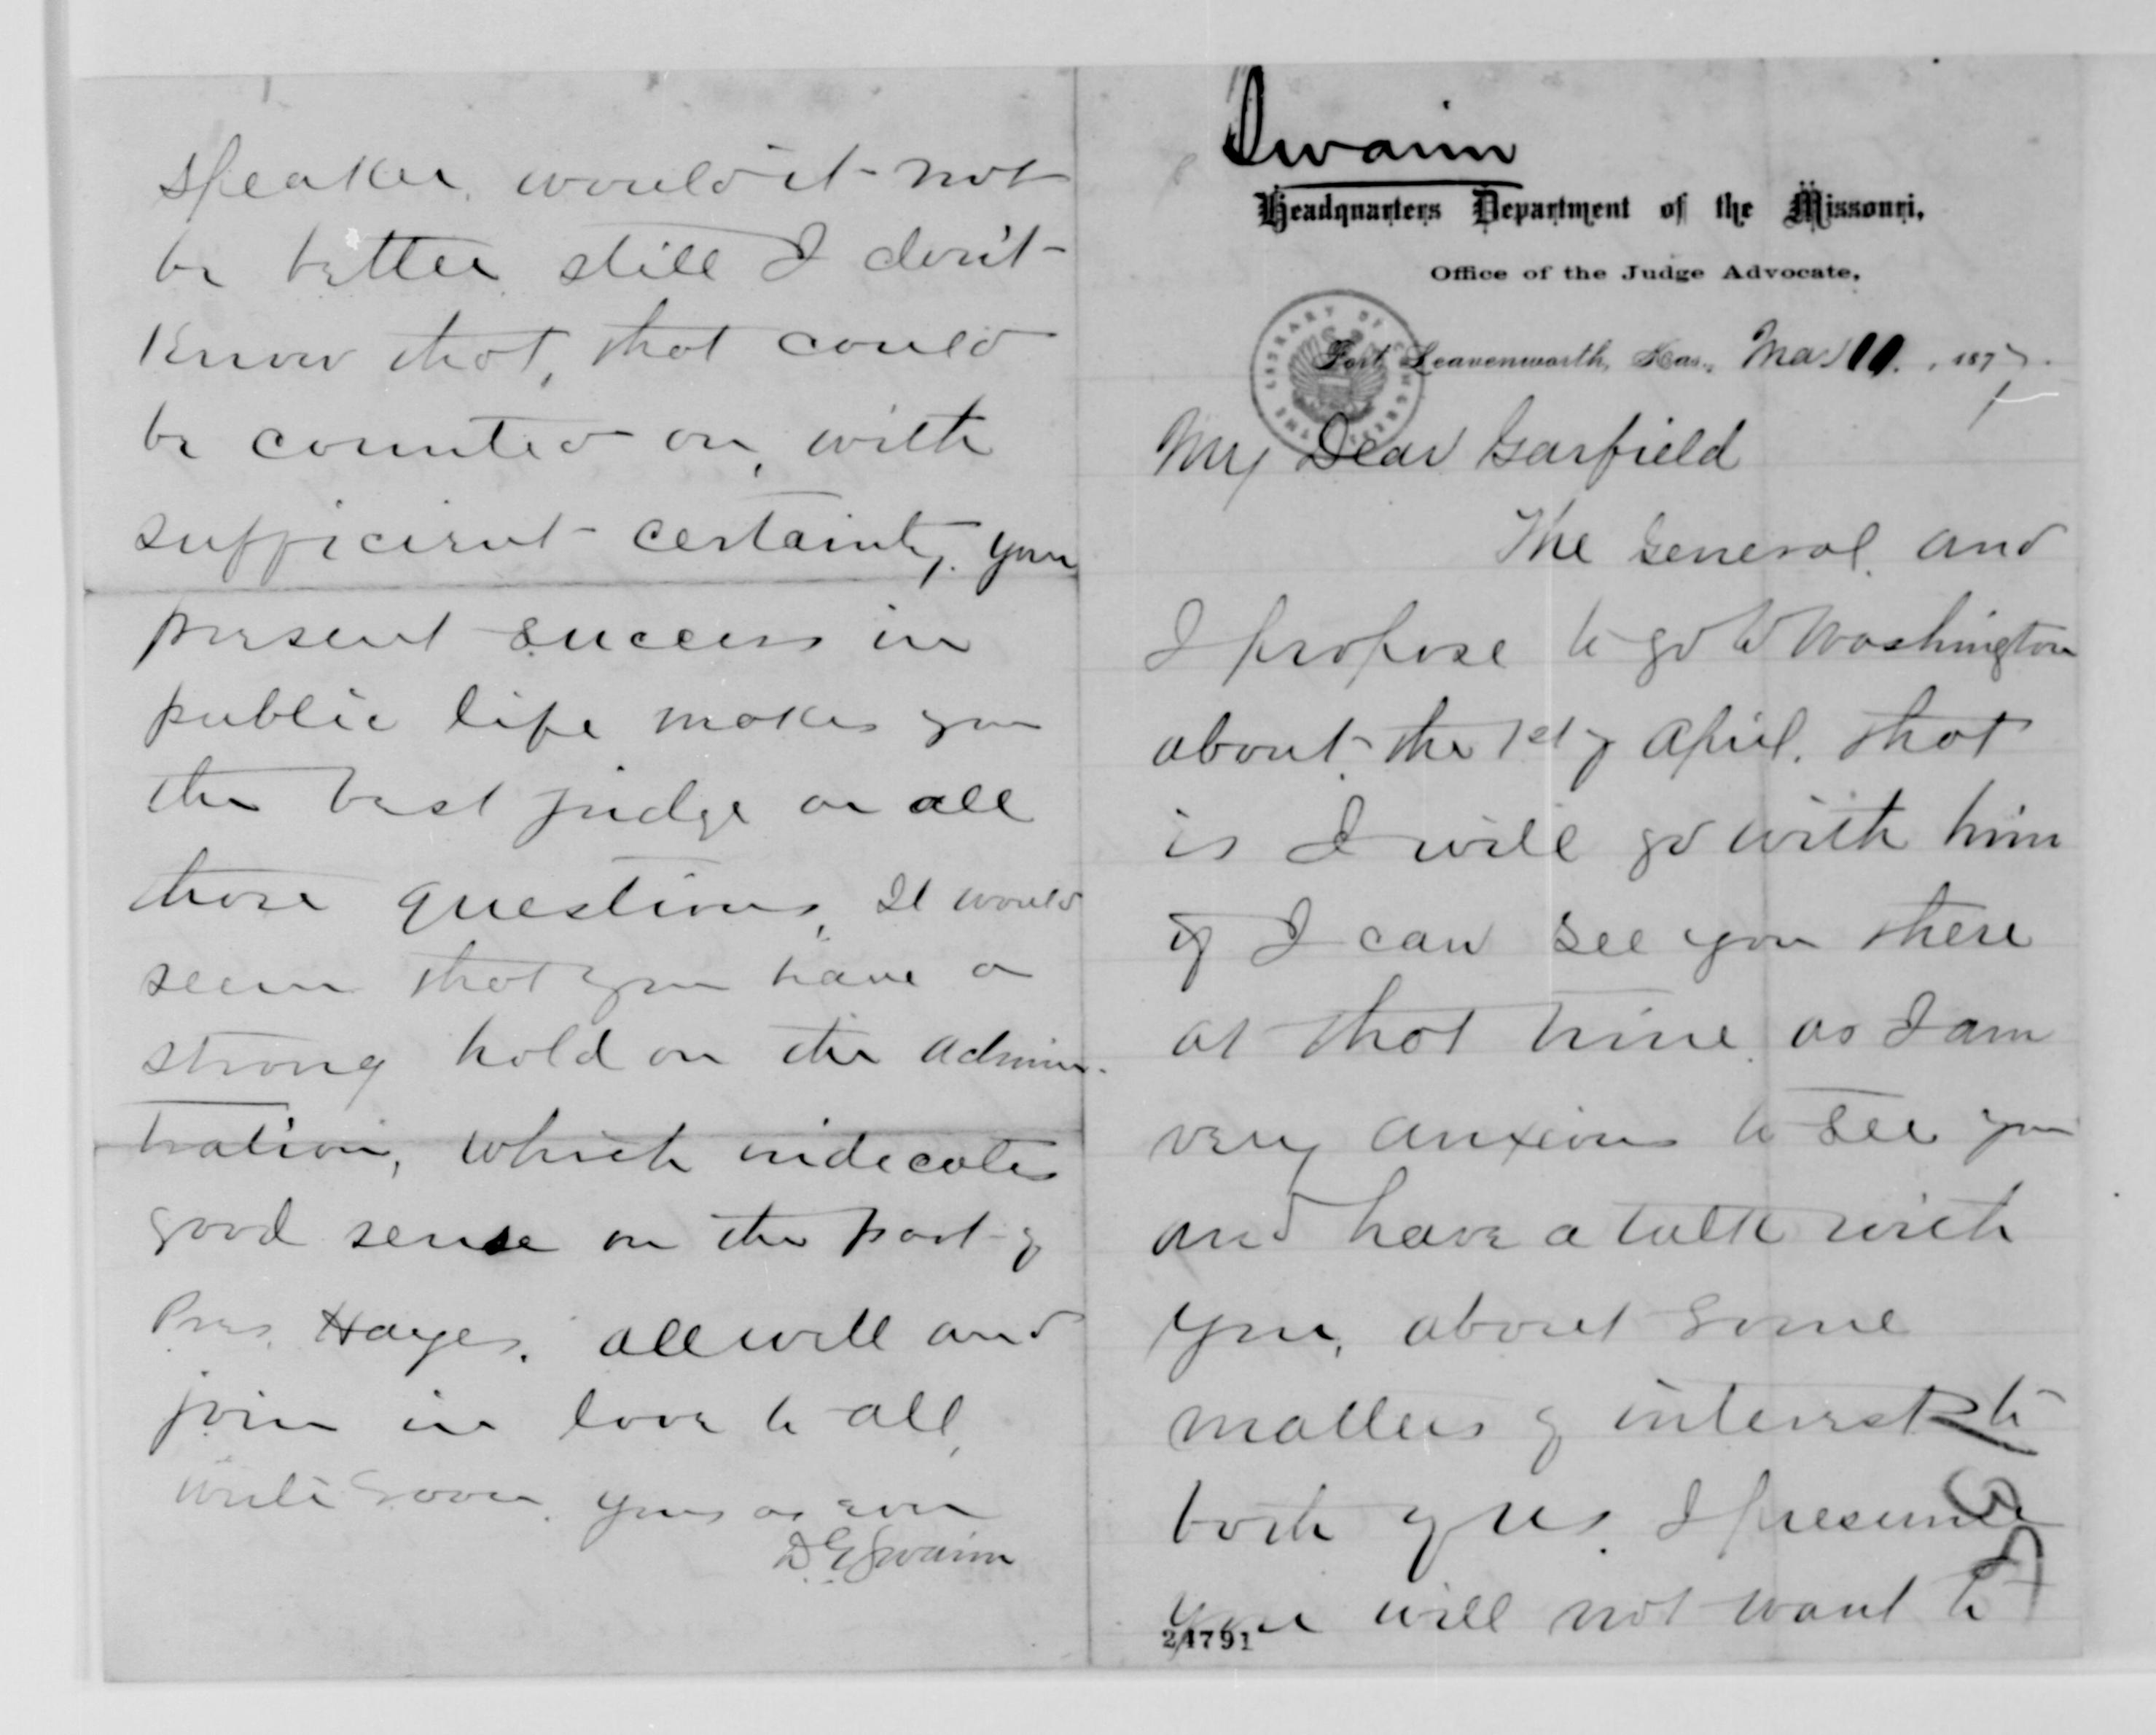 Swaim
Headquarters Department of the Missouri,
Office of the Judge Advocate,
THE LIBRARY OF CONGRESS
Fort Leavenworth, Kas., Mar 11. , 1877.
My Dear Garfield
The General, and
I propose to go to Washington
about the 1st of April. that
is I will go with him
if I can see you there
at that time. as I am
very anxious to see you
and have a talk with
you, about some
matters of interest to
both of us. I presume
you will not want to
24791
speaker, would it not
be better still I don't
know that, that could
be counted on, with
sufficient certainty. your
present success in
public life makes you
the best judge on all
those questions, It would
seem that you have a
strong hold on the adminis-
tration, which indicates
good sense on the part of
Pres. Hayes. all well and
join in love to all,
write soon. yours as ever
D.G. Swaim